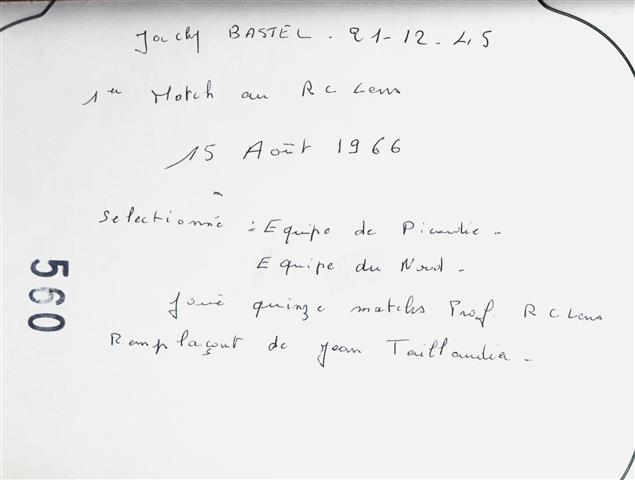 Jacky BASTEL . 21-12. 45
1er Match au RC Lens
15 Août 1966
Selectionné : Equipe de Picardie -
Equipe du Nord -
Joué quinze matchs Prof. RC Lens
Remplaçant de Jean Taillandier -
560